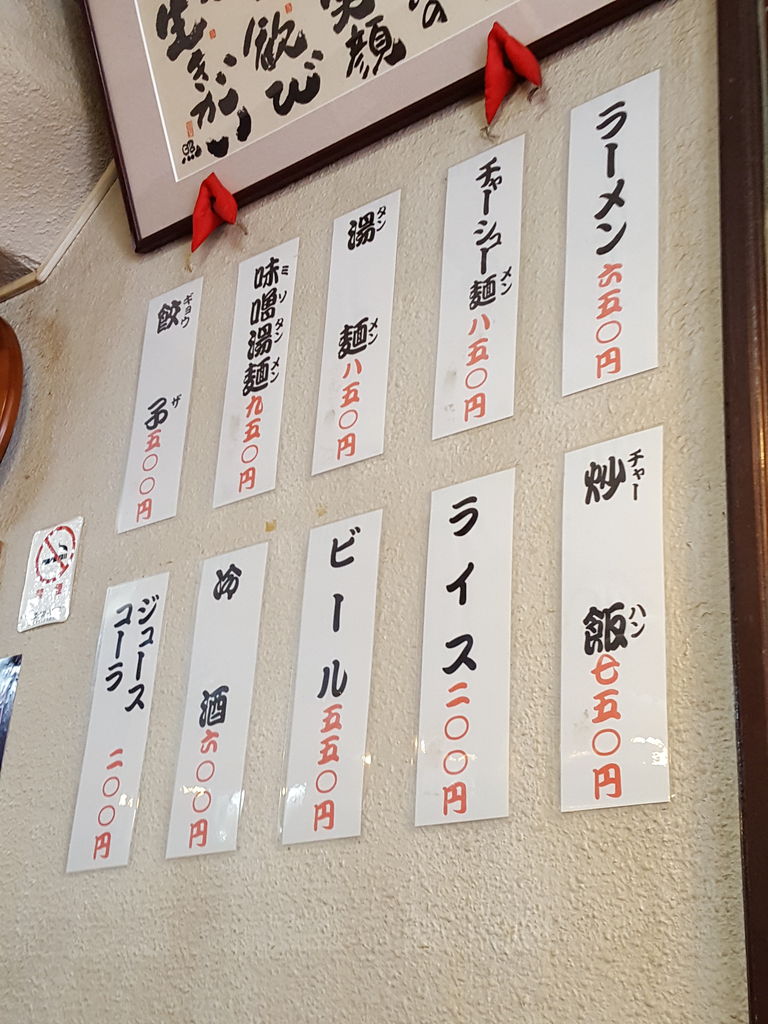 の
笑顔
歓び
生きがい
ラーメン 六五〇円
チャーシュー麺 八五〇円
メン
湯麺 八五〇円
タン メン
味噌湯麺 九五〇円
ミソタンメン
餃子 五〇〇円
ギョウ ザ
炒飯 七五〇円
チャー ハン
ライス 二〇〇円
ビール 五五〇円
冷酒 六〇〇円
ジュース
コーラ 二〇〇円